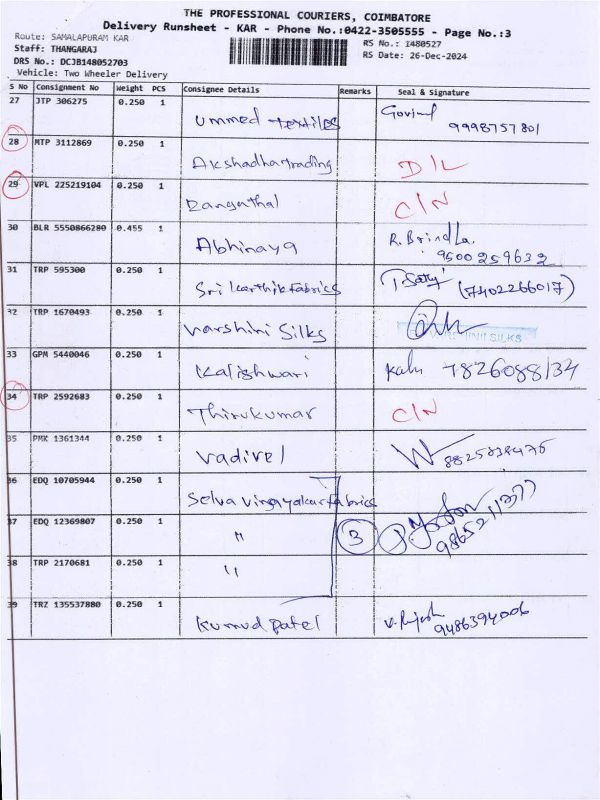 THE PROFESSIONAL COURIERS, COIMBATORE
Delivery Runsheet - KAR - Phone No.:0422-3505555 - Page No.:3
Route: SAMALAPURAM KAR
RS No.: 1480527
Staff: THANGARAJ
RS Date: 26-Dec-2024
DRS No.: DCJB148052703
Vehicle: Two Wheeler Delivery
S No Consignment No Weight PCS Consignee Details Remarks Seal & Signature
27 JTP 306275 0.250 1 Ummed textiles Govind 9998757801
28 MTP 3112869 0.250 1 Akshadha trading D/L
29 VPL 225219104 0.250 1 Rangathal C/N
30 BLR 5550866280 0.455 1 Abhinaya R. Brindha. 9500259632
31 TRP 595300 0.250 1 Sri karthik fabrics (7402266017)
32 TRP 1670493 0.250 1 Varshini Silks SILKS
33 GPM 5440046 0.250 1 Kalishwari
34 TRP 2592683 0.250 1 Thirukumar C/N
35 PMK 1361344 0.250 1 Vadivel
36 EDQ 10705944 0.250 1 Selva fabrics
37 EDQ 12369807 0.250 1 " 3
38 TRP 2170681 0.250 1 "
39 TRZ 135537880 0.250 1 Kumud patel V. Rajesh 9486394006